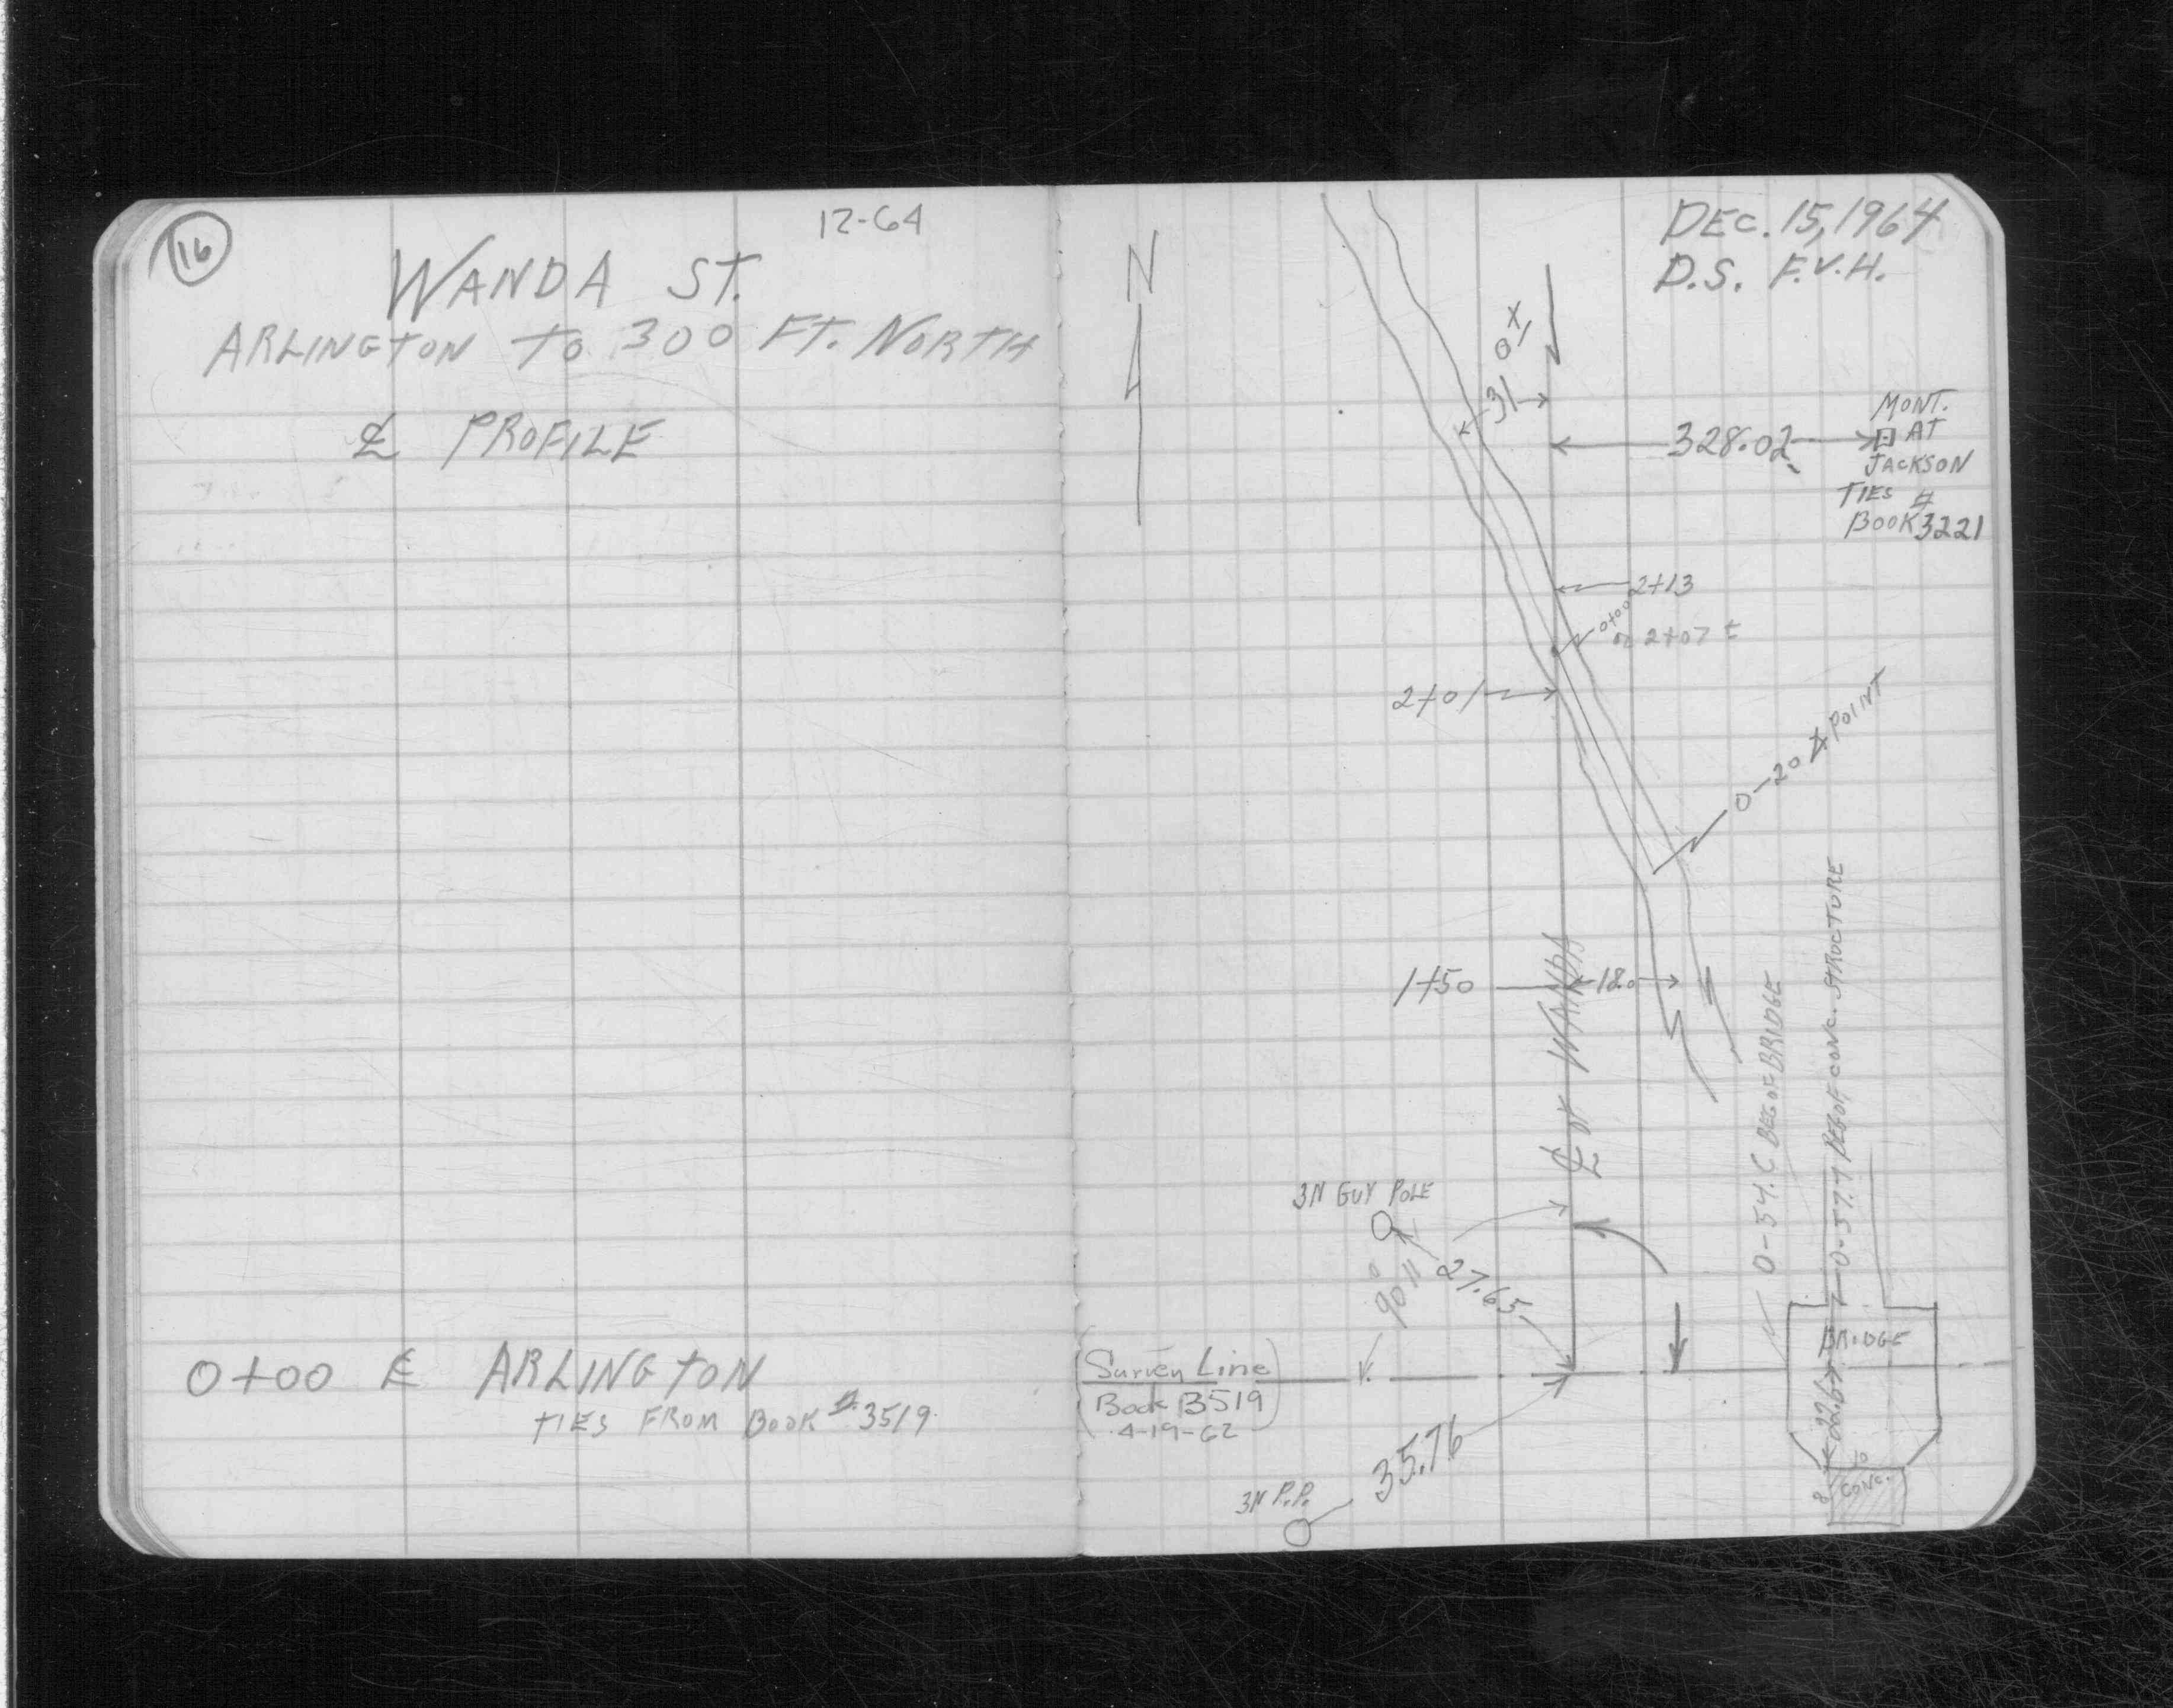 16
12-64
WANDA ST.
ARLINGTON TO 300 FT. NORTH
℄ PROFILE
0+00 ℄ ARLINGTON
TIES FROM BOOK # 3519
DEC. 15, 1964
D.S. F.V.H.
N
31
328.02
MONT.
AT
JACKSON
TIES #
BOOK 3221
2+13
0+00
2+07 ±
2+01
0-20 ∡ POINT
1+50
18.0
WANDA
BEG OF BRIDGE
BEG OF CONC. STRUCTURE
3N GUY POLE
27.65
90°
(Survey Line
Book B519
4-19-62)
BRIDGE
22.67
35.76
3N P.P.
CONC.